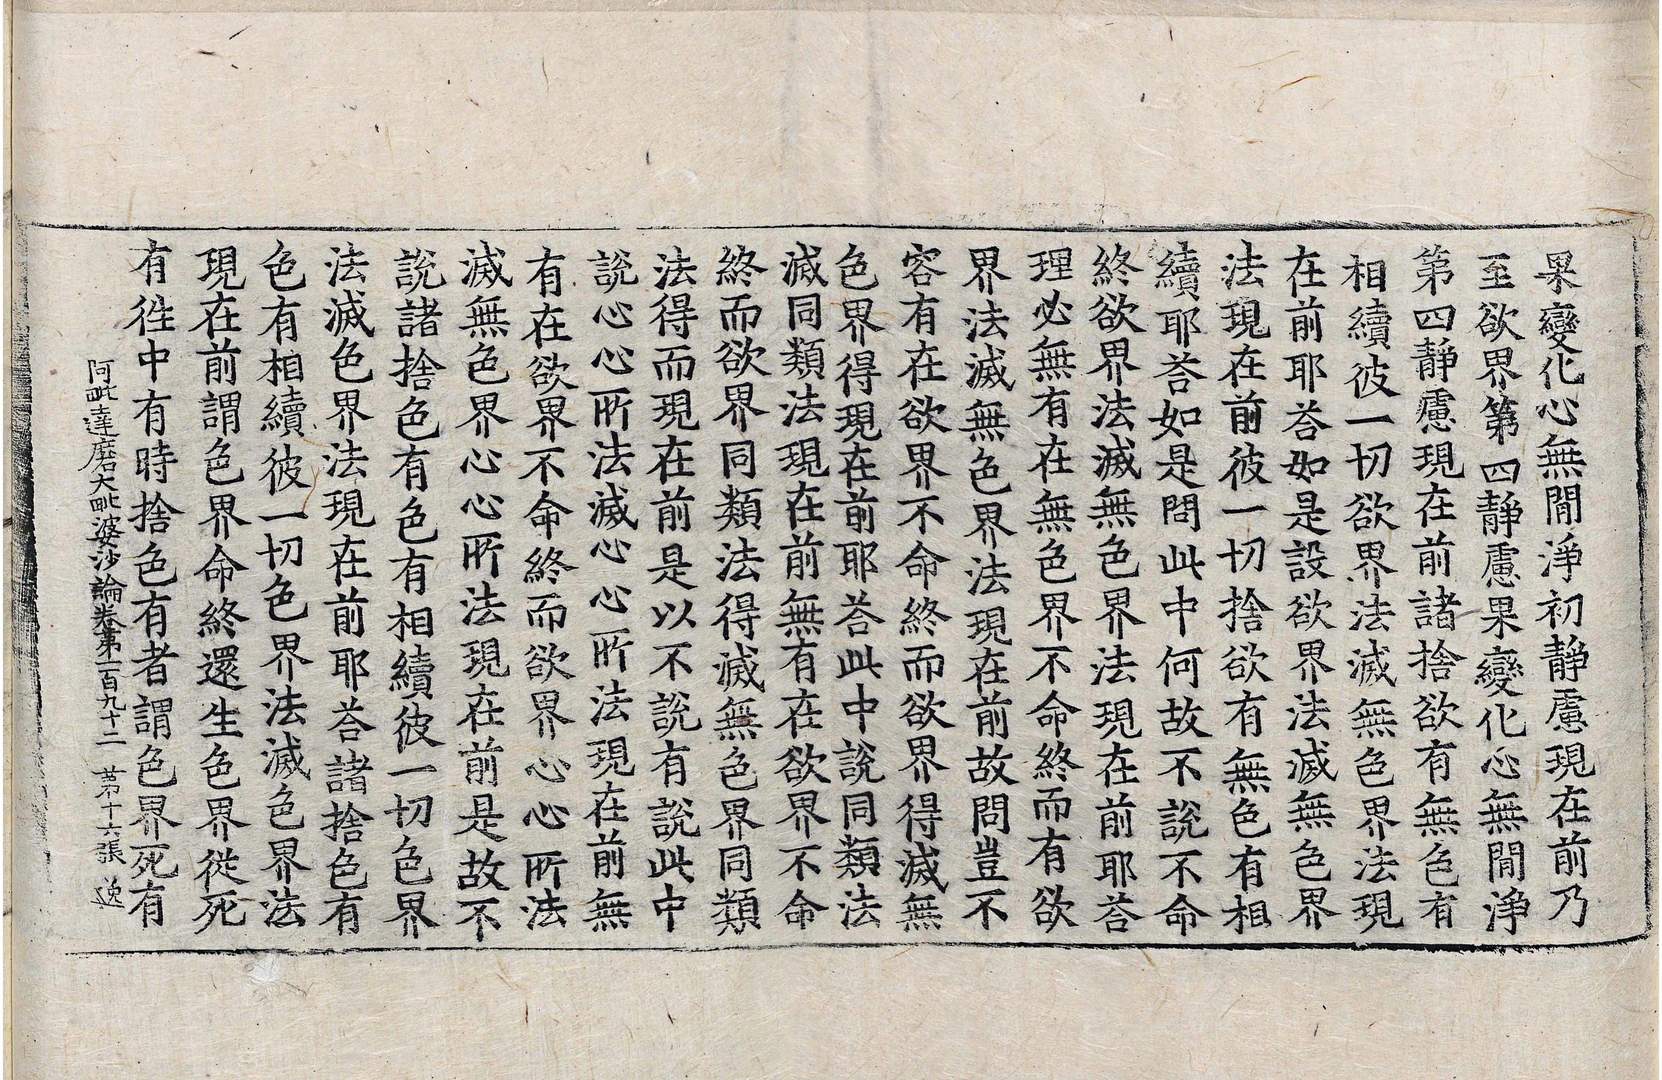 果變化心無間淨初靜慮現在前乃
至欲界第四靜慮果變化心無間淨
第四靜慮現在前諸捨欲有無色有
相續彼一切欲界法滅無色界法現
在前耶荅如是設欲界法滅無色界
法現在前彼一切捨欲有無色有相
續耶荅如是問此中何故不說不命
終欲界法滅無色界法現在前耶荅
理必無有在無色界不命終而有欲
界法滅無色界法現在前故問豈不
容有在欲界不命終而欲界得滅無
色界得現在前耶荅此中說同類法
滅同類法現在前無有在欲界不命
終而欲界同類法得滅無色界同類
法得而現在前是以不說有說此中
說心心所法滅心心所法現在前無
有在欲界不命終而欲界心心所法
滅無色界心心所法現在前是故不
說諸捨色有色有相續彼一切色界
法滅色界法現在前耶荅諸捨色有
色有相續彼一切色界法滅色界法
現在前謂色界命終還生色界從死
有徃中有時捨色有者謂色界死有
阿毗達磨大毗婆沙論卷第一百九十二 第十六張 逸